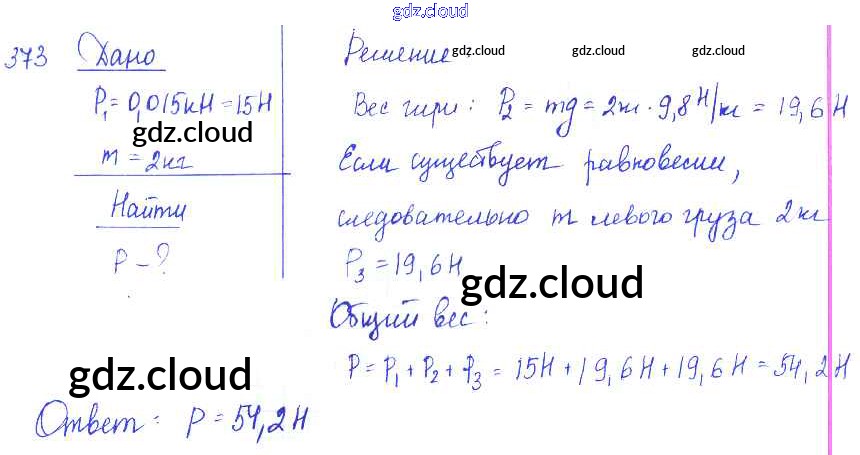 gdz.cloud
373 Дано
P₁ = 0,015кН = 15Н
gdz.cloud
m = 2кг
Найти
P – ?
Решение gdz.cloud gdz.cloud gdz.cloud
Вес гири: P₂ = mg = 2кг · 9,8 Н/кг = 19,6 Н
Если существует равновесии,
следовательно m левого груза 2кг
P₃ = 19,6 Н
gdz.cloud
Общий вес:
P = P₁ + P₂ + P₃ = 15Н + 19,6Н + 19,6Н = 54,2Н
gdz.cloud
Ответ: P = 54,2Н